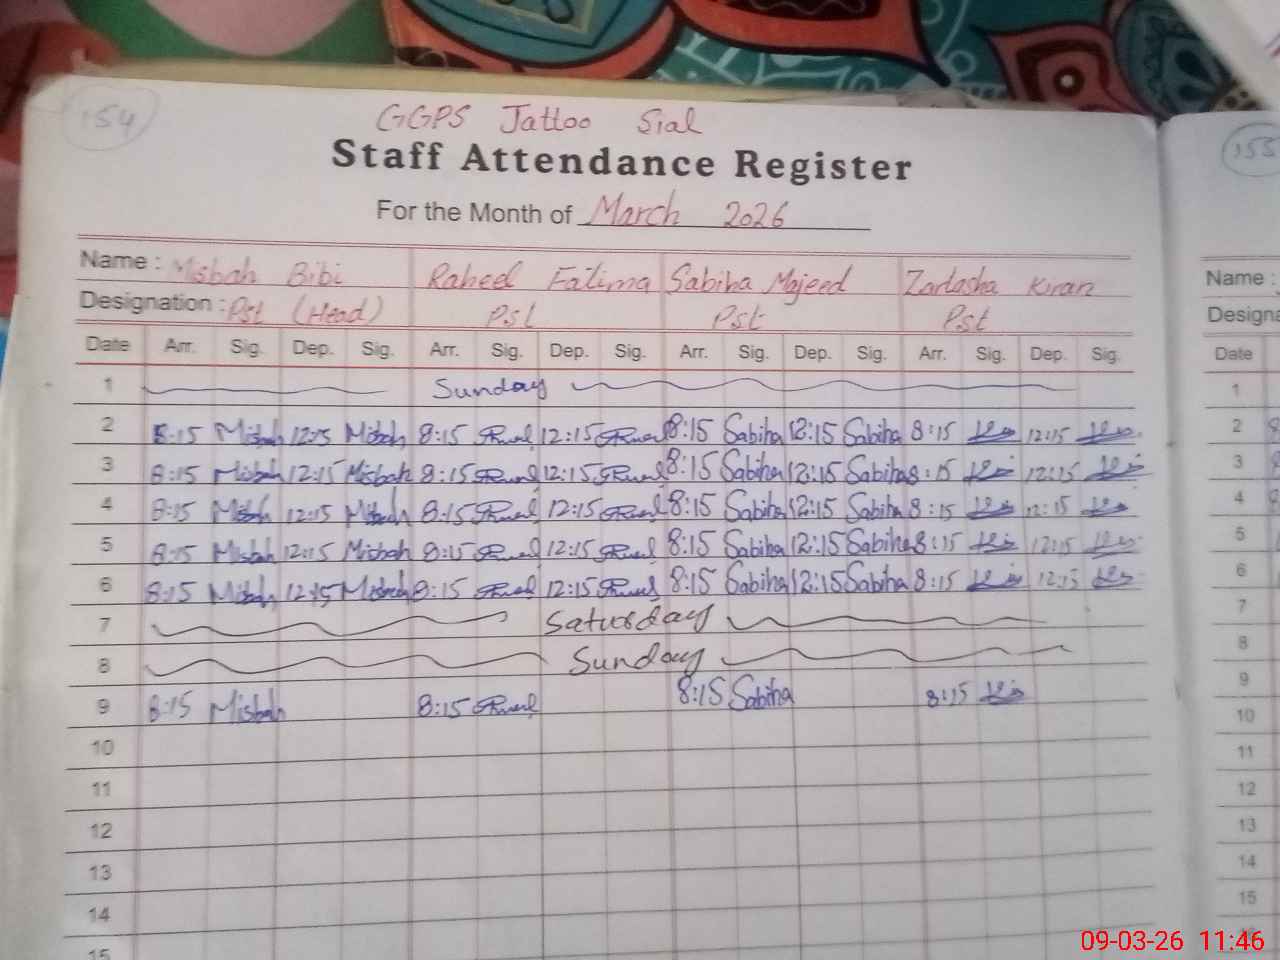 154
GGPS Jattoo Sial
Staff Attendance Register
For the Month of March 2026
Name : Misbah Bibi Raheel Fatima Sabiha Majeed Zartasha Kiran
Designation : Pst (Head) Pst Pst Pst
Date Arr. Sig. Dep. Sig. Arr. Sig. Dep. Sig. Arr. Sig. Dep. Sig. Arr. Sig. Dep. Sig.
1 Sunday
2 8:15 Misbah 12:15 Misbah 8:15 12:15 8:15 Sabiha 12:15 Sabiha 8:15 12:15
3 8:15 Misbah 12:15 Misbah 8:15 12:15 8:15 Sabiha 12:15 Sabiha 8:15 12:15
4 8:15 Misbah 12:15 Misbah 8:15 12:15 8:15 Sabiha 12:15 Sabiha 8:15 12:15
5 8:15 Misbah 12:15 Misbah 8:15 12:15 8:15 Sabiha 12:15 Sabiha 8:15 12:15
6 8:15 Misbah 12:15 Misbah 8:15 12:15 8:15 Sabiha 12:15 Sabiha 8:15 12:15
7 Saturday
8 Sunday
9 8:15 Misbah 8:15 8:15 Sabiha 8:15
10
11
12
13
14
15
155
Name :
Date
1
2
3
4
5
6
7
8
9
10
11
12
13
14
15
09-03-26 11:46